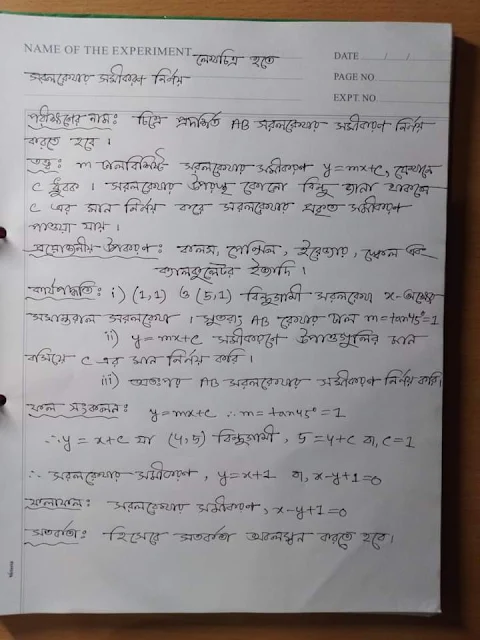 NAME OF THE EXPERIMENT লেখচিত্র হতে
DATE / /
সরলরেখার সমীকরণ নির্ণয়
PAGE NO
EXPT. NO
পরীক্ষণের নাম: চিত্রে প্রদর্শিত AB সরলরেখার সমীকরণ নির্ণয়
করতে হবে।
তত্ত্ব: m ঢালবিশিষ্ট সরলরেখার সমীকরণ y=mx+c, যেখানে
c ধ্রুবক। সরলরেখার উপরস্থ কোনো বিন্দু জানা থাকলে
c এর মান নির্ণয় করে সরলরেখার প্রকৃত সমীকরণ
পাওয়া যায়।
প্রয়োজনীয় উপকরণ: কলম, পেন্সিল, ইরেজার, স্কেল এবং
ক্যালকুলেটর ইত্যাদি।
কার্যপদ্ধতি: i) (1,1) ও (5,1) বিন্দুগামী সরলরেখা x-অক্ষের
সমান্তরাল সরলরেখা। সুতরাং AB রেখার ঢাল m=tan45°=1
ii) y=mx+c সমীকরণে উপাত্তগুলির মান
বসিয়ে c এর মান নির্ণয় করি।
iii) অতঃপর AB সরলরেখার সমীকরণ নির্ণয় করি।
ফল সংকলন: y=mx+c ∴m=tan45°=1
∴y=x+c যা (4,5) বিন্দুগামী, 5=4+c বা, c=1
∴ সরলরেখার সমীকরণ, y=x+1 বা, x-y+1=0
ফলাফল: সরলরেখার সমীকরণ, x-y+1=0
সতর্কতা: হিসেবে সতর্কতা অবলম্বন করতে হবে।